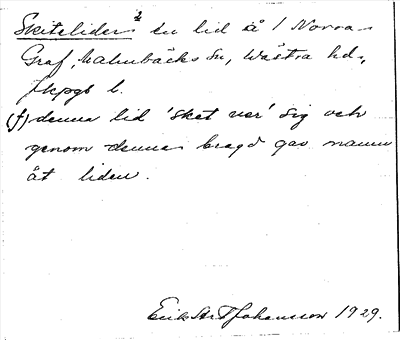 Skitelider² en lid å 1 Norra
Graf, Malmbäcks sn, Wästra hd,
Jkpgs l.
(f) denna lid 'sket ner' sig och
genom denna bragd gav namn
åt liden.
Erik Johansson 1929.